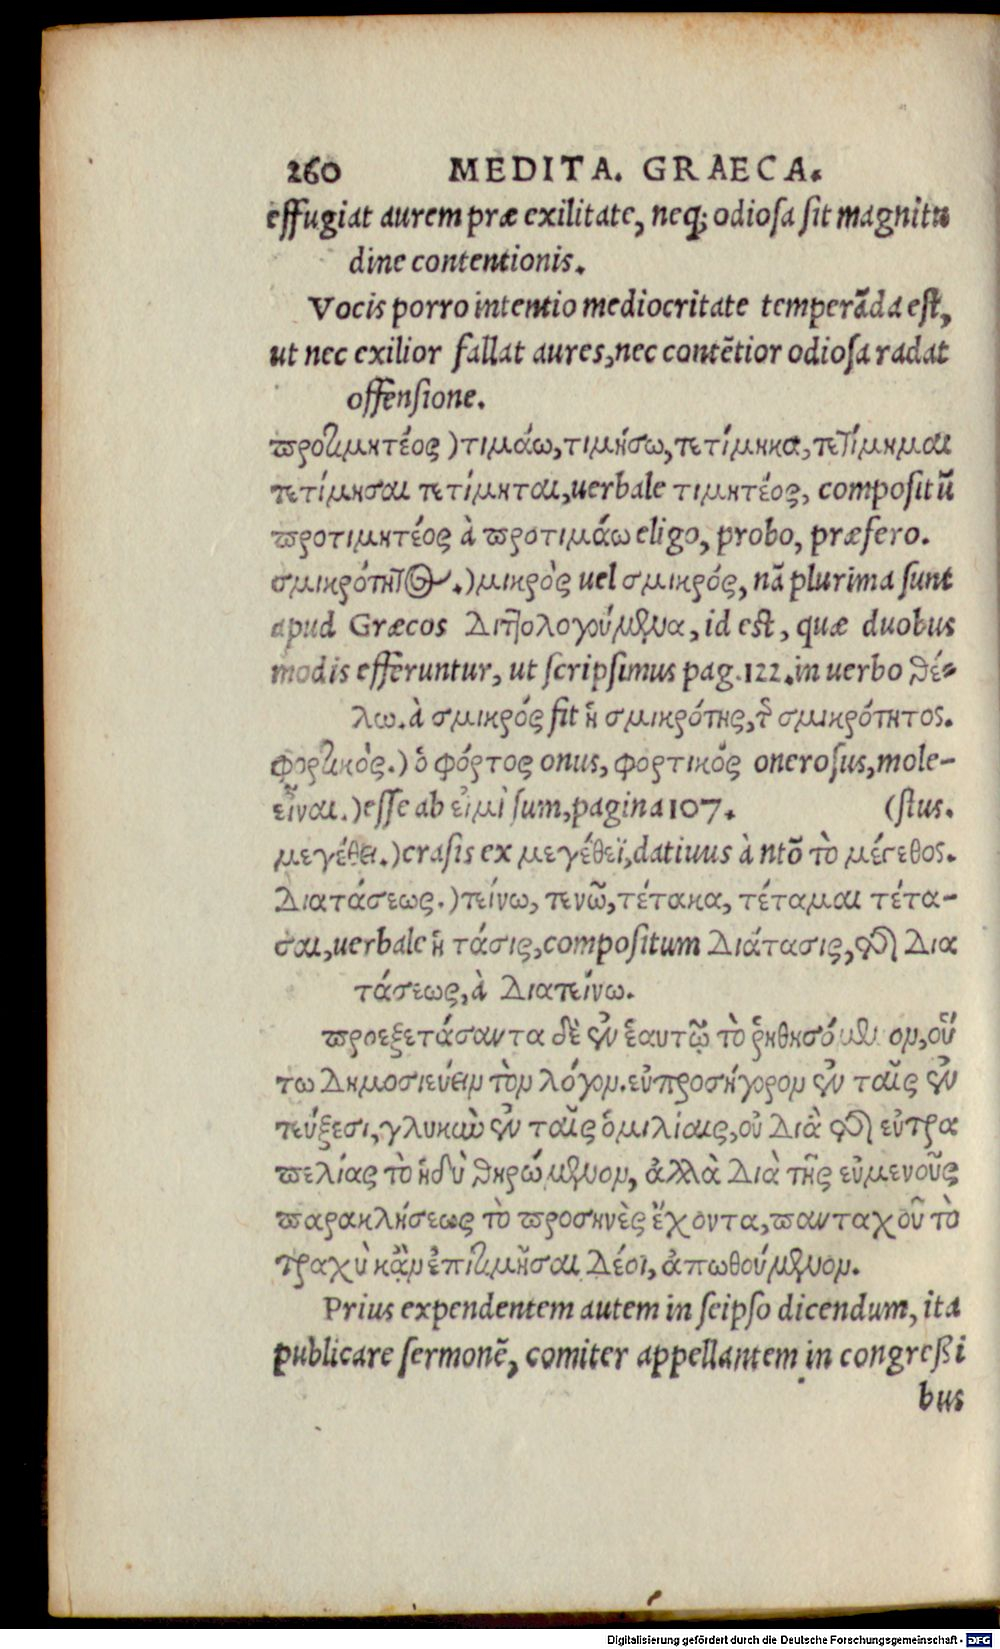 260 MEDITA. GRAECA.
effugiat aurem præ exilitate, neq; odiosa sit magnitu
dine contentionis.
Vocis porro intentio mediocritate temperāda est,
ut nec exilior fallat aures, nec contētior odiosa radat
offensione.
προτιμητέος) τιμάω, τιμήσω, τετίμηκα, τετίμημαι
τετίμησαι τετίμηται, uerbale τιμητέος, compositū
προτιμητέος à προτιμάω eligo, probo, præfero.
σμικρότητος.) μικρὸς uel σμικρός, nā plurima sunt
apud Græcos Διττολογούμενα, id est, quæ duobus
modis efferuntur, ut scripsimus pag. 122. in uerbo θέ-
λω. à σμικρός fit ἡ σμικρότης, τῆς σμικρότητος.
φορτικὸς.) ὁ φόρτος onus, φορτικός onerosus, mole-
εἶναι.) esse ab εἰμὶ sum, pagina 107. (stus.
μεγέθει.) crasis ex μεγέθεϊ, datiuus à ntō τὸ μέγεθος.
Διατάσεως.) τείνω, τενῶ, τέτακα, τέταμαι τέτα-
σαι, uerbale ἡ τάσις, compositum Διάτασις, τῆς Δια
τάσεως, à Διατείνω.
προεξετάσαντα δὲ ἐν ἑαυτῷ τὸ ῥηθησόμενον, οὕ
τω Δημοσιεύειν τὸν λόγον. εὐπροσήγορον ἐν ταῖς ἐν
τεύξεσι, γλυκὺν ἐν ταῖς ὁμιλίαις, οὐ Διὰ τῆς εὐτρα
πελίας τὸ ἡδὺ θηρώμενον, ἀλλὰ Διὰ τῆς εὐμενοῦς
παρακλήσεως τὸ προσηνὲς ἔχοντα, πανταχοῦ τὸ
τραχὺ κἂν ἐπιτιμῆσαι Δέοι, ἀπωθούμενον.
Prius expendentem autem in seipso dicendum, ita
publicare sermonē, comiter appellantem in congreßi
bus
Digitalisierung gefördert durch die Deutsche Forschungsgemeinschaft - DFG